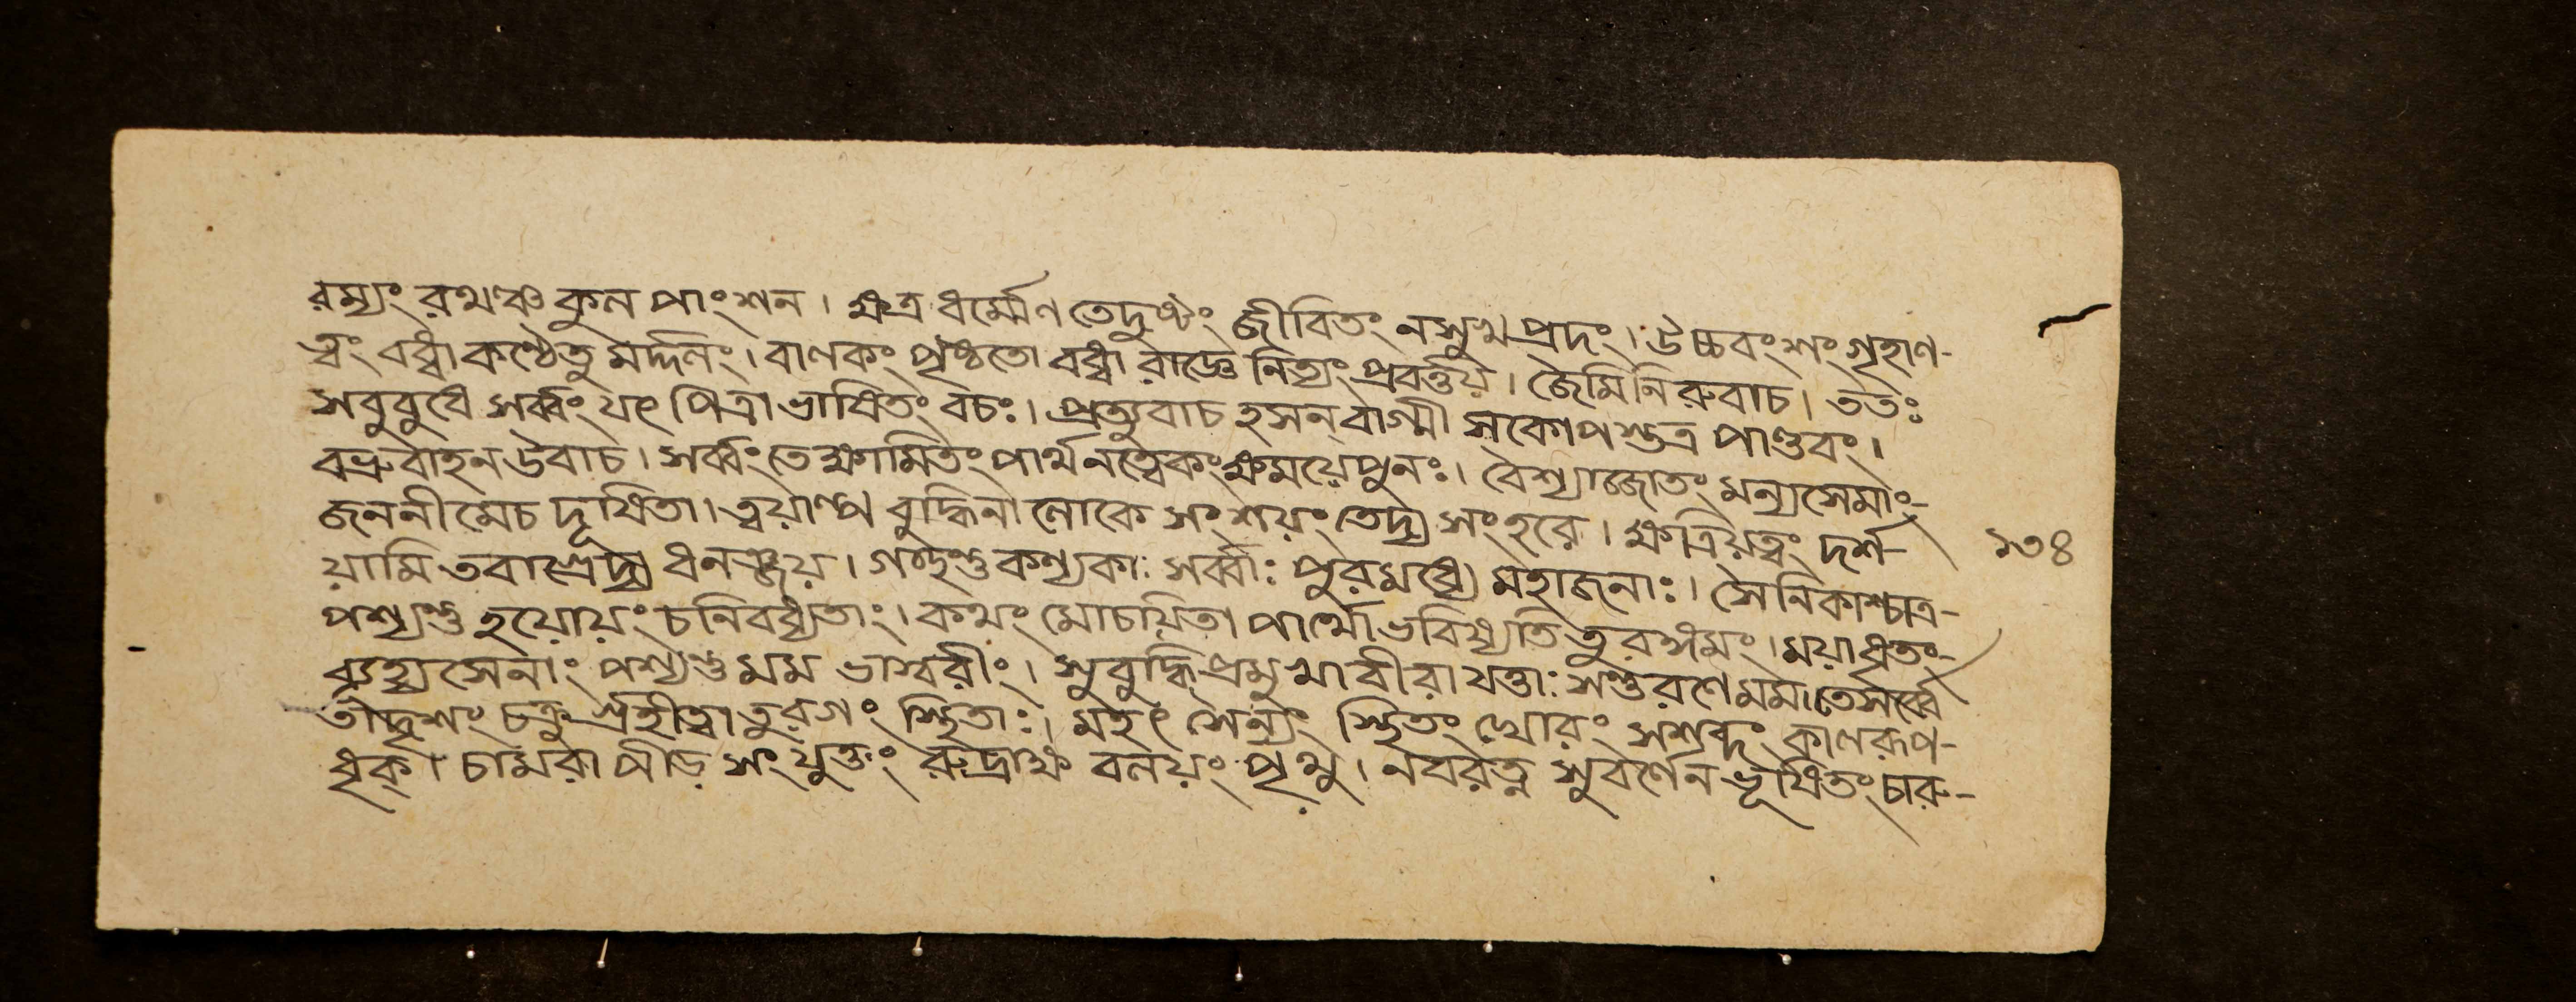 রম্যং রথঞ্চ কুল পাংশন। ক্ষত্র ধর্ম্মেণ তেদুষ্টং জীবিতং নসুখ প্রদং। উচ্চবংশং গৃহাণ-
ত্বং বধ্বা কণ্ঠেতু মর্দ্দলং। বালকং পৃষ্ঠতো বধ্বা রাজ্ঞে নিত্যং প্রবর্ত্তয়। জৈমিনি রুবাচ। ততঃ
সবুবুধে সর্ব্বং যৎ পিত্রা ভাষিতং বচঃ। প্রত্যুবাচ হসন্ বাগ্মী সকোপস্তত্র পাণ্ডবং।
বভ্রুবাহন উবাচ। সর্ব্বং তে ক্ষামিতং পার্থ নত্বেকং ক্ষময়েপুনঃ। বৈশ্যাজ্জাতং মন্যসেমাং-
জননীমেচ দূষিতা। ত্বয়াল্প বুদ্ধিনা লোকে সংশয়ং তেদ্য সংহরে। ক্ষত্রিয়ত্বং দর্শ- ১৩৪
য়ামি তবাগ্রেদ্য ধনঞ্জয়। গচ্ছন্তু কন্যকাঃ সর্ব্বাঃ পুরমধ্যে মহাজনাঃ। সৈনিকাশ্চাত্র-
পশ্যন্তু হয়োয়ং চনিবধ্যতাং। কথং মোচয়িতা পার্থো ভবিষ্যতি তুরঙ্গমং। ময়াধৃতং-
ব্যূহ্য সেনাং পশ্যন্তু মম ভাস্বরীং। সুবুদ্ধি প্রমুখা বীরা যত্তাঃ সন্তু রণে মম। তেসর্ব্বে
তাদৃশং চক্রু র্গৃহীত্বা তুরগং স্থিতাঃ। মহৎ সৈন্যং স্থিতং ঘোরং সশব্দং কালরূপ-
ধৃক্। চামরাপীড় সংযুক্তং রুদ্রাক্ষ বলয়ং পৃথু। নবরত্ন সুবর্ণেন ভূষিতং চারু-